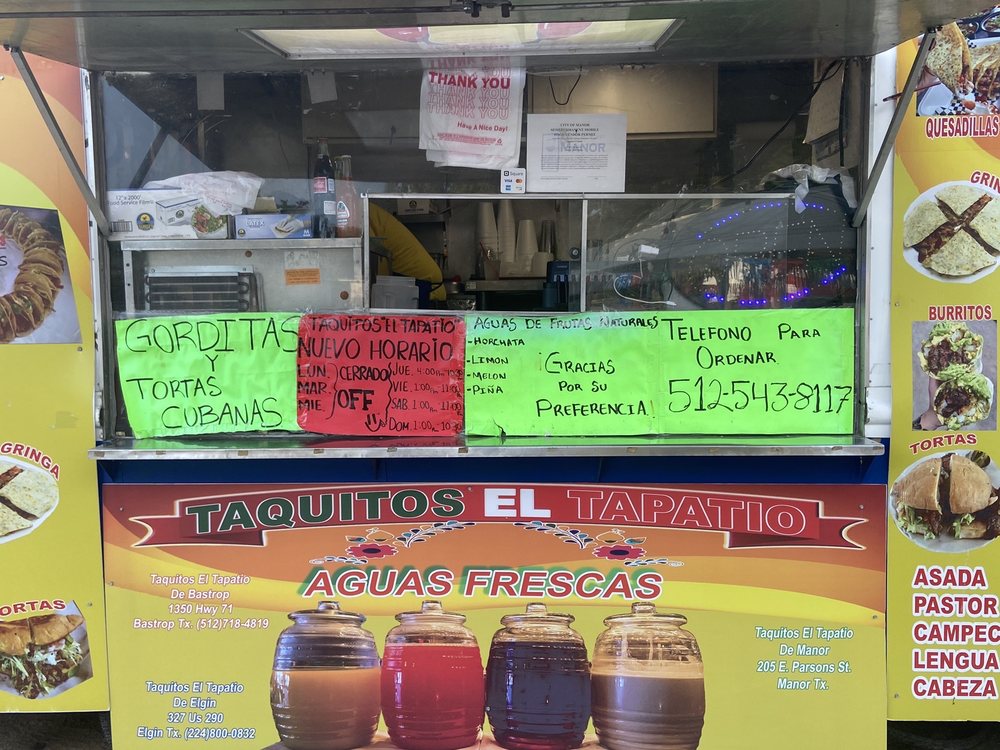 THANK YOU
THANK YOU
THANK YOU
Have A Nice Day!
CITY OF MANOR
MANOR
Square
VISA
12" x 2000'
Food Service Film
QUESADILLAS
GRINGA
BURRITOS
TORTAS
ASADA
PASTOR
CAMPEC
LENGUA
CABEZA
GRINGA
ORTAS
GORDITAS
Y
TORTAS
CUBANAS
TAQUITOS "EL TAPATIO
NUEVO HORARIO
LUN.
MAR.
MIE.
CERRADO
OFF
JUE. 4:00
VIE. 1:00
SAB. 1:00
DOM. 1:00
AGUAS DE FRUTAS NATURALES
-HORCHATA
-LIMON
-MELON
-PIÑA
¡GRACIAS
POR SU
PREFERENCIA!
TELEFONO PARA
ORDENAR
512-543-8117
TAQUITOS EL TAPATIO
AGUAS FRESCAS
Taquitos El Tapatio
De Bastrop
1350 Hwy 71
Bastrop Tx. (512)718-4819
Taquitos El Tapatio
De Elgin
327 Us 290
Elgin Tx. (224)800-0832
Taquitos El Tapatio
De Manor
205 E. Parsons St.
Manor Tx.